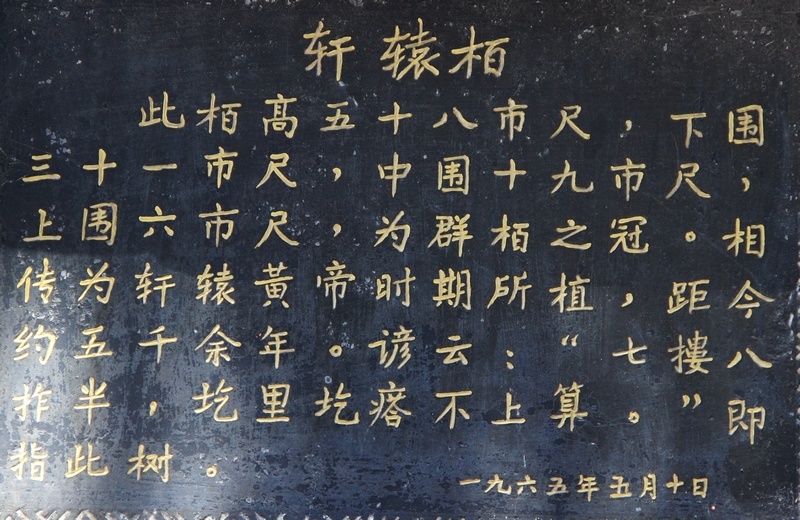 轩辕柏
此柏高五十八市尺，下围
三十一市尺，中围十九市尺，
上围六市尺，为群柏之冠。相
传为轩辕黄帝时期所植，距今
约五千余年。谚云：“七搂八
拃半，圪里圪瘩不上算。”即
指此树。
一九六五年五月十日